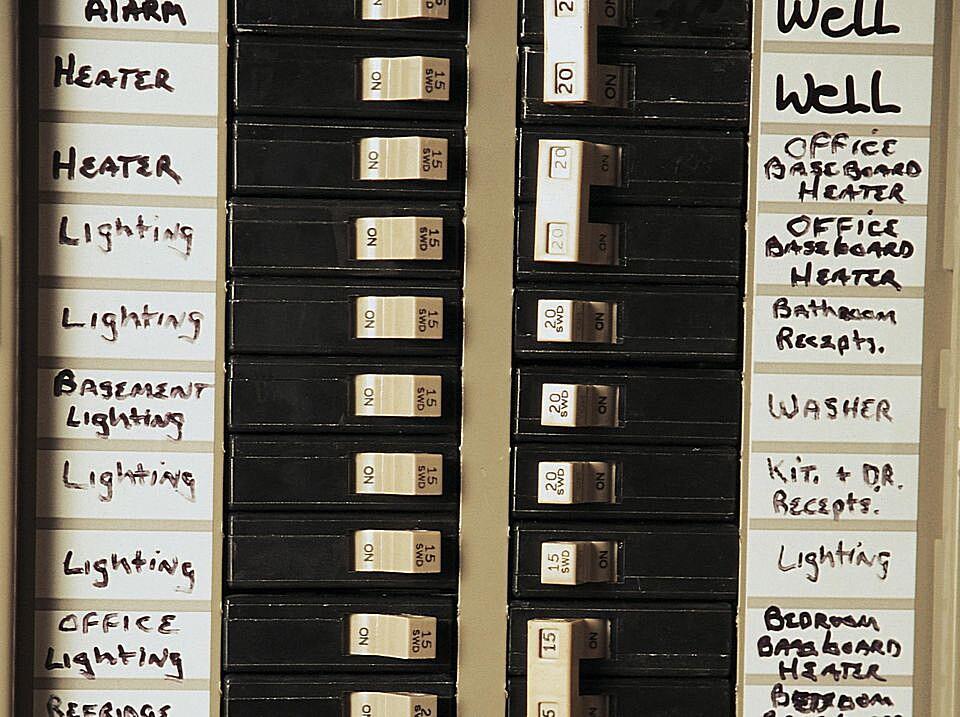 ALARM
HEATER
HEATER
Lighting
Lighting
BASEMENT
Lighting
Lighting
Lighting
OFFICE
Lighting
REFRIDGE
ON
ON 15 SWD
ON 15 SWD
ON 15 SWD
ON 15 SWD
ON 15 SWD
ON 15 SWD
ON 15 SWD
ON 15 SWD
ON
ON
20 ON
20 ON
20 ON
20 SWD ON
20 SWD ON
20 SWD ON
15 SWD ON
15 ON
WeLL
WeLL
OFFICE
BASEBOARD
HEATER
OFFICE
BASEBOARD
HEATER
Bathroom
Recepts.
WASHER
KIT. + DR.
Recepts.
Lighting
BEDROOM
BASEBOARD
HEATER
BEDROOM